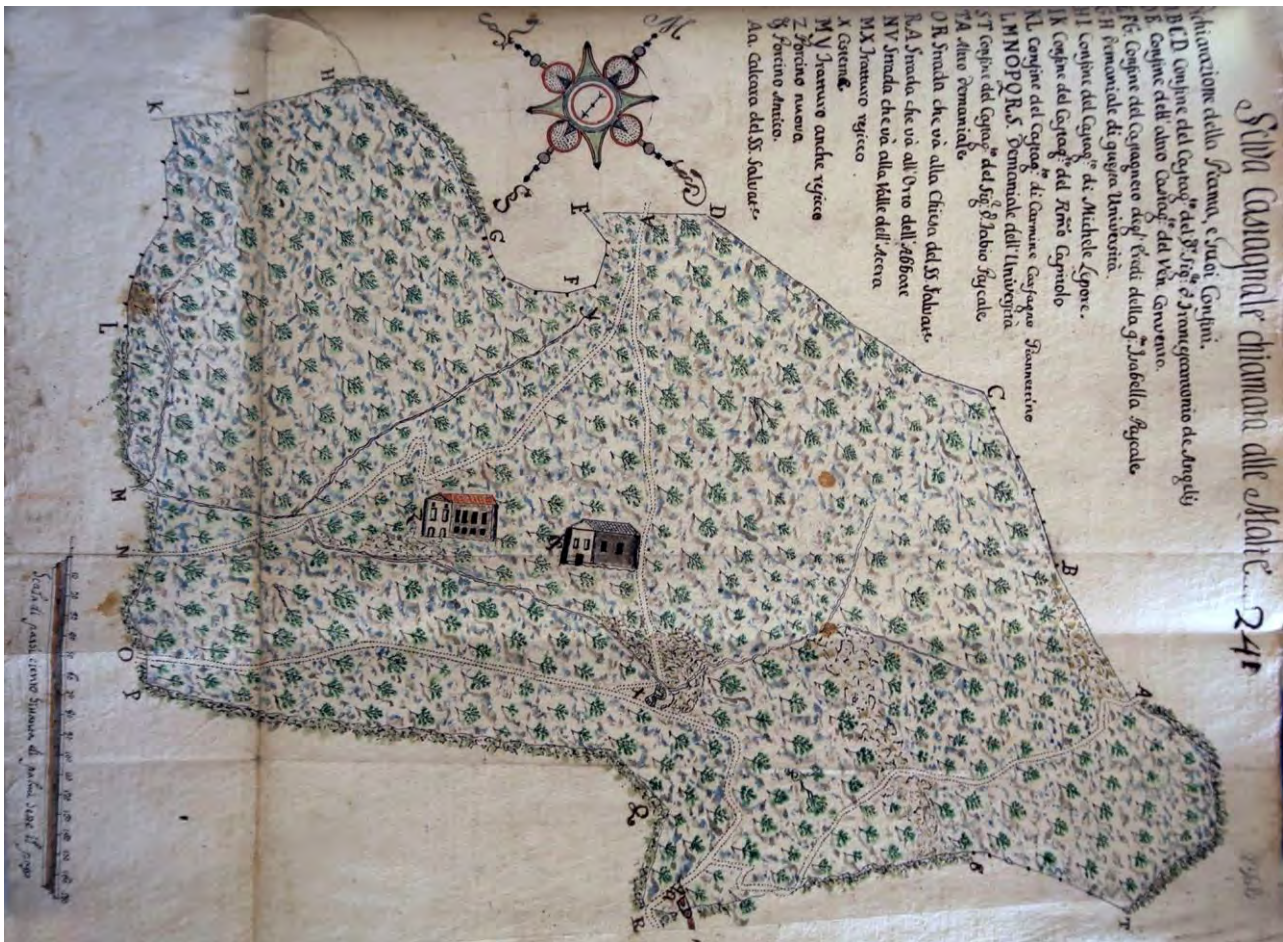 Selva Castagnale chiamata alle Molit... 241
Dichiarazione della Pianta, e suoi Confini.
ABCD Confine del Castag.to del S. Sig.r D. Francescantonio de Angelis
DE. Confine dell'altro Castag.to del Ven. Convento.
EFG. Confine del Castagneto degl'Eredi della q.m Isabella Pascale
GH Demaniale di questa Università.
HI Confine del Castag.to di Michele Lepore.
IK Confine del Castag.to del R.mo Capitolo
KL Confine del Castag.to di Carmine
LMNOPQRS. Demaniale dell'Università
ST Confine del Castag.to del Sig.r D. Fabio Pascale
TA Altro Demaniale
OR Strada che và alla Chiesa del SS. Salvat.e
RA Strada che và all'Orto dell'Abbate
NV Strada che và alla Valle dell'Acera
MX Tratturo
X Cisterne
MY Tratturo anche
Z Porcino nuovo
& Porcino Antico.
Aa. Calcara del SS. Salvat.e
M
S
P
K
I
H
G
E
F
V
D
Y
C
B
A
L
M
N
O
P
Q
R
S
T
X
Z
Scala di passi cento